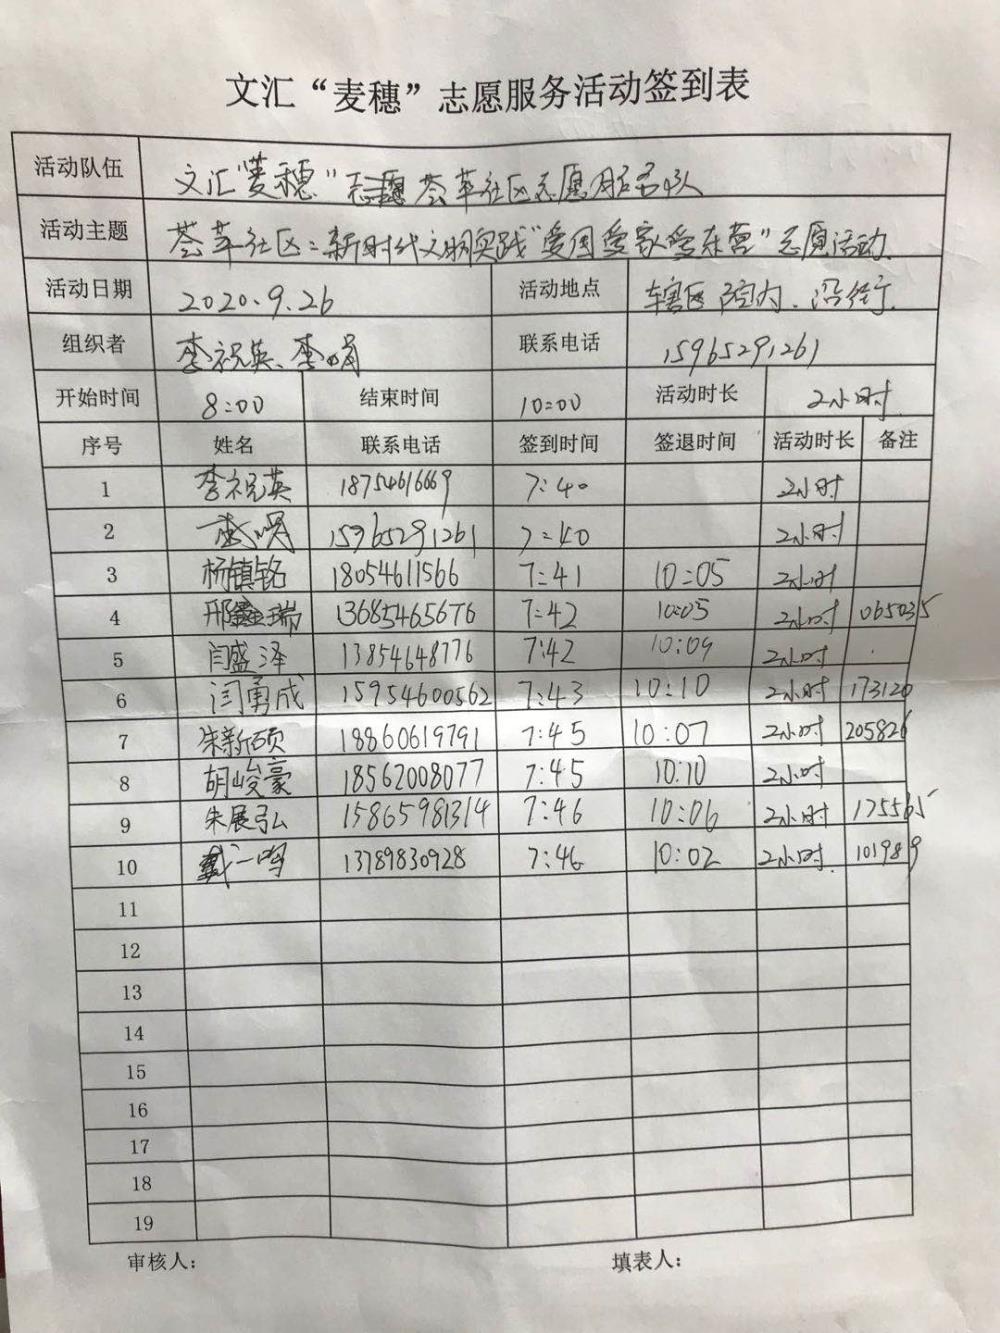 文汇“麦穗”志愿服务活动签到表
活动队伍 文汇“麦穗”志愿荟萃社区志愿服务队
活动主题 荟萃社区：新时代文明实践“爱国爱家爱东营”志愿活动
活动日期 2020.9.26 活动地点 辖区院内、沿街
组织者 李祝英、李娟 联系电话 15965291261
开始时间 8:00 结束时间 10:00 活动时长 2小时
序号 姓名 联系电话 签到时间 签退时间 活动时长 备注
1 李祝英 18754616669 7:40 2小时
2 15965291261 7:40 2小时
3 杨镇铭 18054611566 7:41 10:05 2小时
4 邢鑫瑞 13685465676 7:42 10:05 2小时 065035
5 闫盛泽 13854648776 7:42 10:09 2小时
6 闫勇成 15954600562 7:43 10:10 2小时 173120
7 朱新硕 18860619791 7:45 10:07 2小时 205826
8 胡峻豪 18562008077 7:45 10:10 2小时
9 朱展弘 15865981314 7:46 10:06 2小时 175565
10 戴一鸣 13789830928 7:46 10:02 2小时 101989
11
12
13
14
15
16
17
18
19
审核人： 填表人：